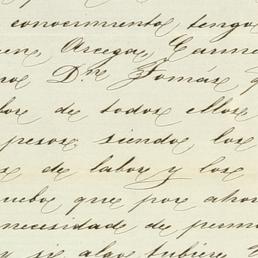 conocimiento tengo
Arcega, Carme
Dn Tomás
de todos ellos
pesos, siendo los
de labor y los
que por ahor
necesidad de perm
y si algo tubiere